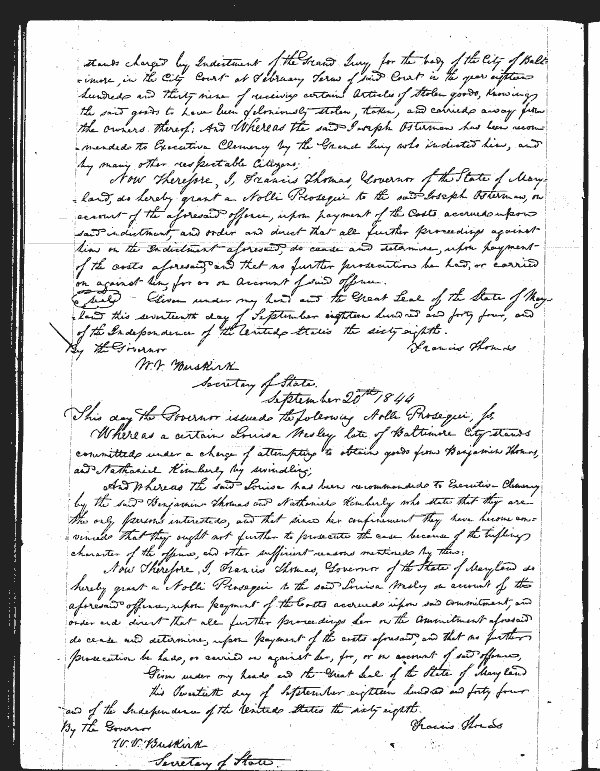 stands charged by Indictment of the Grand Jury for the body of the City of Balt
=imore, in the City Court at February Term of said Court in the year eighteen
hundred and thirty nine of receiving certain Articles of Stolen goods, knowing
the said goods to have been feloniously stolen, taken, and carried away from
the owners thereof; And Whereas the said Joseph Osterman has been recom
=mended to Executive Clemency by the Grand Jury who indicted him, and
by many other respectable Citizens;
Now Therefore, I, Francis Thomas, Governor of the State of Mary-
land, do hereby grant a Nolli Prosequi to the said Joseph Osterman, on
account of the aforesaid offence, upon payment of the Costs accrued upon
said indictment, and order and direct that all further proceedings against
him on the Indictment aforesaid, do cease and determine, upon payment
of the costs aforesaid, and that no further prosecution be had, or carried
on against him, for or on account of said offence.
Given under my hand and the Great Seal of the State of Mary-
land this seventeenth day of September eighteen hundred and forty four, and
of the Independence of the United States the sixty eighth.
By the Governor Francis Thomas
W. V. Buskirk
Secretary of State.
September 20th 1844
This day the Governor issued the following Nolli Prosequi,
Whereas a certain Louisa Wesley late of Baltimore City stands
committed under a charge of attempting to obtain goods from Benjamin Thomas,
and Nathaniel Kimberly by swindling;
And Whereas the said Louisa has been recommended to Executive Clemency
by the said Benjamin Thomas and Nathaniel Kimberly who state that they are
the only persons interested, and that since her confinement they have become con-
vinced that they ought not further to prosecute the case because of the trifling
character of the offence, and other sufficient reasons mentioned by them:
Now Therefore, I, Francis Thomas, Governor of the State of Maryland do
hereby grant a Nolli Prosequi to the said Louisa Wesley on account of the
aforesaid offence, upon payment of the Costs accrued upon said commitment, and
order and direct that all further proceedings her on the commitment aforesaid
do cease and determine, upon payment of the costs aforesaid, and that no further
prosecution be had, or carried on against her, for, or on account of said offence,
Given under my hand and the Great Seal of the State of Maryland
this Twentieth day of September eighteen hundred and forty four
and of the Independence of the United States the sixty eighth.
By the Governor Francis Thomas
W. V. Buskirk
Secretary of State